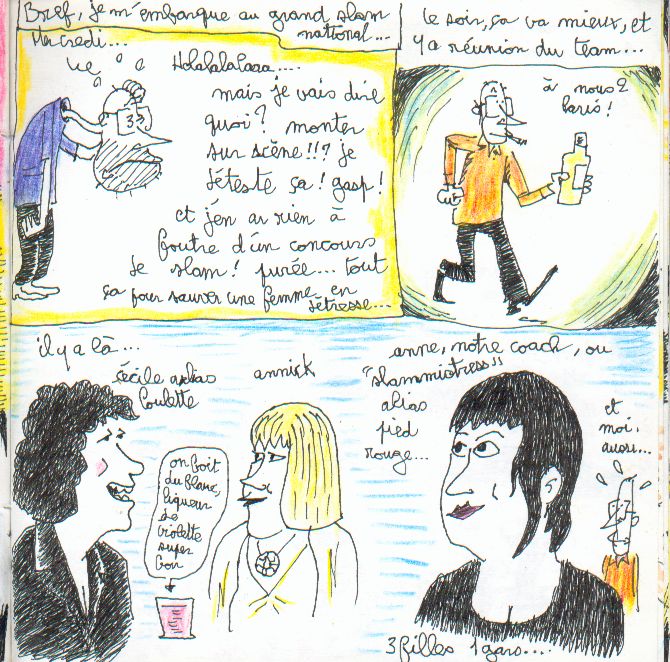 Bref, je m'embarque au grand slam
national...
Mercredi...
Holalalalaaa....
mais je vais dire
quoi? monter
sur scène!!? je
déteste ça! gasp!
et j'en ai rien à
foutre d'un concours
de slam! purée... tout
ça pour sauver une femme en
détresse...
le soir, ça va mieux, et
y a réunion du team...
à nous 2
Paris!
il y a là...
cécile alias
Poulette
annick
on boit
du blanc,
liqueur
de
violette
super
bon
anne, notre coach, ou
"slammistress"
alias
pied
rouge...
et
moi,
aussi...
3 filles 1 gars....